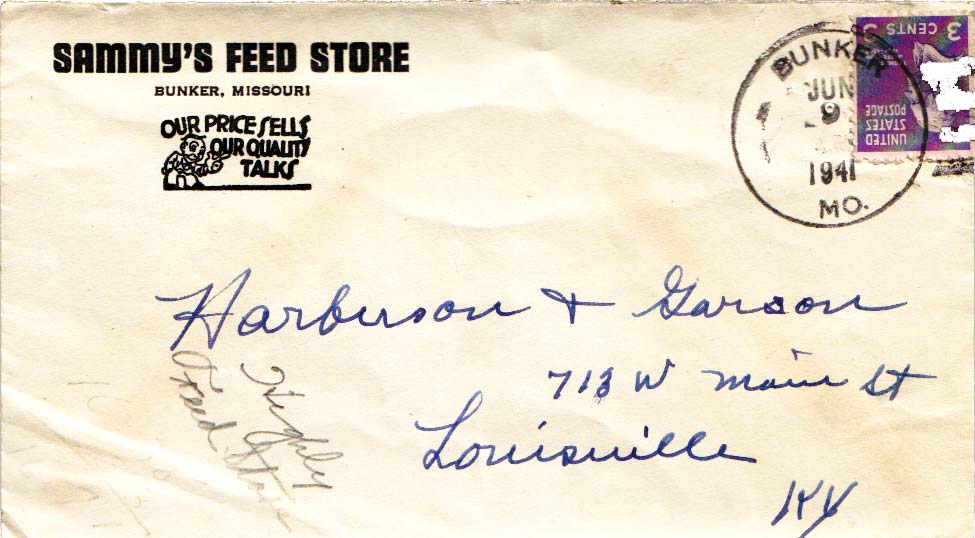 SAMMY'S FEED STORE
BUNKER, MISSOURI
OUR PRICE SELLS
OUR QUALITY
TALKS
BUNKER
JUN
9
1941
MO.
3 CENTS 3
UNITED
STATES
POSTAGE
Harbuson & Garson
713 W Main St
Louisville
KY
Highly
Feed Store